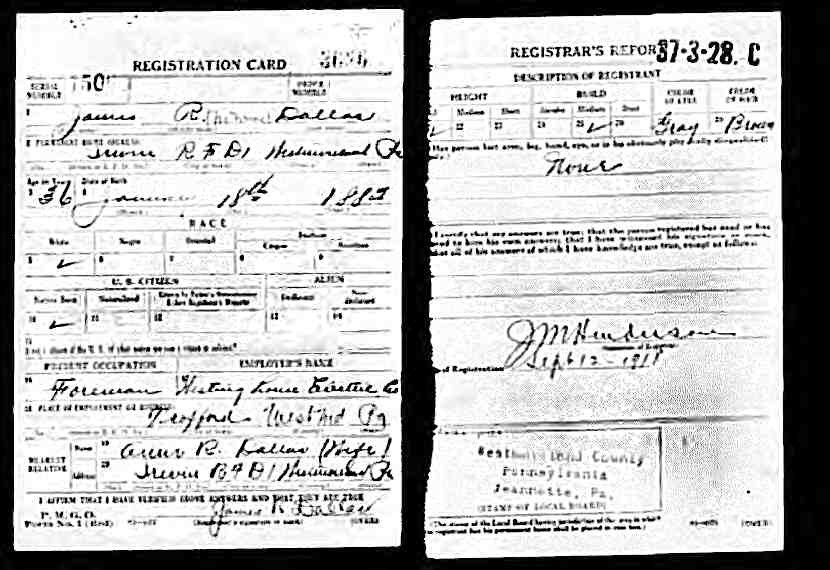 REGISTRATION CARD
SERIAL NUMBER
ORDER NUMBER
James R. Sherwood Dallas
PERMANENT HOME ADDRESS
Irwin R F D 1 Westmoreland Pa
Age in Years
Date of Birth
36
18th
RACE
White
Negro
Oriental
Indian
Citizen
U. S. CITIZEN
ALIEN
Native Born
Naturalized
Declarant
Non-declarant
PRESENT OCCUPATION
EMPLOYER'S NAME
Foreman Westinghouse Electric Co
PLACE OF EMPLOYMENT OR BUSINESS
Trafford West'md Pa
NEAREST RELATIVE
Name
R. Dallas (Wife)
Address
Irwin R F D 1 Westmoreland Pa
I AFFIRM THAT I HAVE VERIFIED ABOVE ANSWERS AND THAT THEY ARE TRUE
P. M. G. O.
Form No. 1 (Red)
James R Dallas
(Registrant's signature or mark)
(OVER)
REGISTRAR'S REPOR
37-3-28. C
DESCRIPTION OF REGISTRANT
HEIGHT
BUILD
COLOR OF EYES
COLOR OF HAIR
Medium
Short
Slender
Medium
Stout
22
23
24
25
26
Gray
Brown
Has person lost arm, leg, hand, eye, or is he obviously physically disqualified?
None
I certify that my answers are true; that the person registered has read or has
had to him his own answers; that I have witnessed his signature or mark,
that all of his answers of which I have knowledge are true, except as follows:
J M Henderson
of Registration
Sept 12 - 1918
Westmoreland County
Pennsylvania
Jeannette, Pa.
(STAMP OF LOCAL BOARD)
(The stamp of the Local Board having jurisdiction of the area in which
registrant has his permanent home shall be placed in this box.)
(OVER)